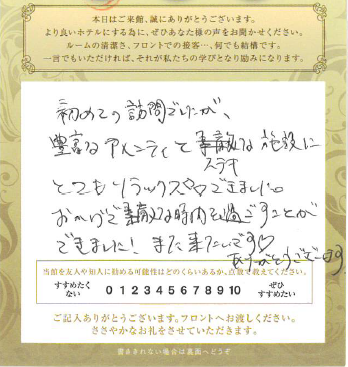 本日はご来館、誠にありがとうございます。
より良いホテルにする為に、ぜひあなた様の声をお聞かせください。
ルームの清潔さ、フロントでの接客…、何でも結構です。
一言でもいただければ、それが私たちの学びとなり励みになります。
初めての訪問でしたが、
豊富なアメニティと素敵な施設に
ステキ
とてもリラックスできました。
おかげで素敵な時間を過ごすことが
できました！また来たいです♡
ありがとうございます
当館を友人や知人に勧める可能性はどのくらいあるか、点数で教えてください。
すすめたくない 0 1 2 3 4 5 6 7 8 9 10 ぜひすすめたい
ご記入ありがとうございます。フロントへお渡しください。
ささやかなお礼をさせていただきます。
書ききれない場合は裏面へどうぞ